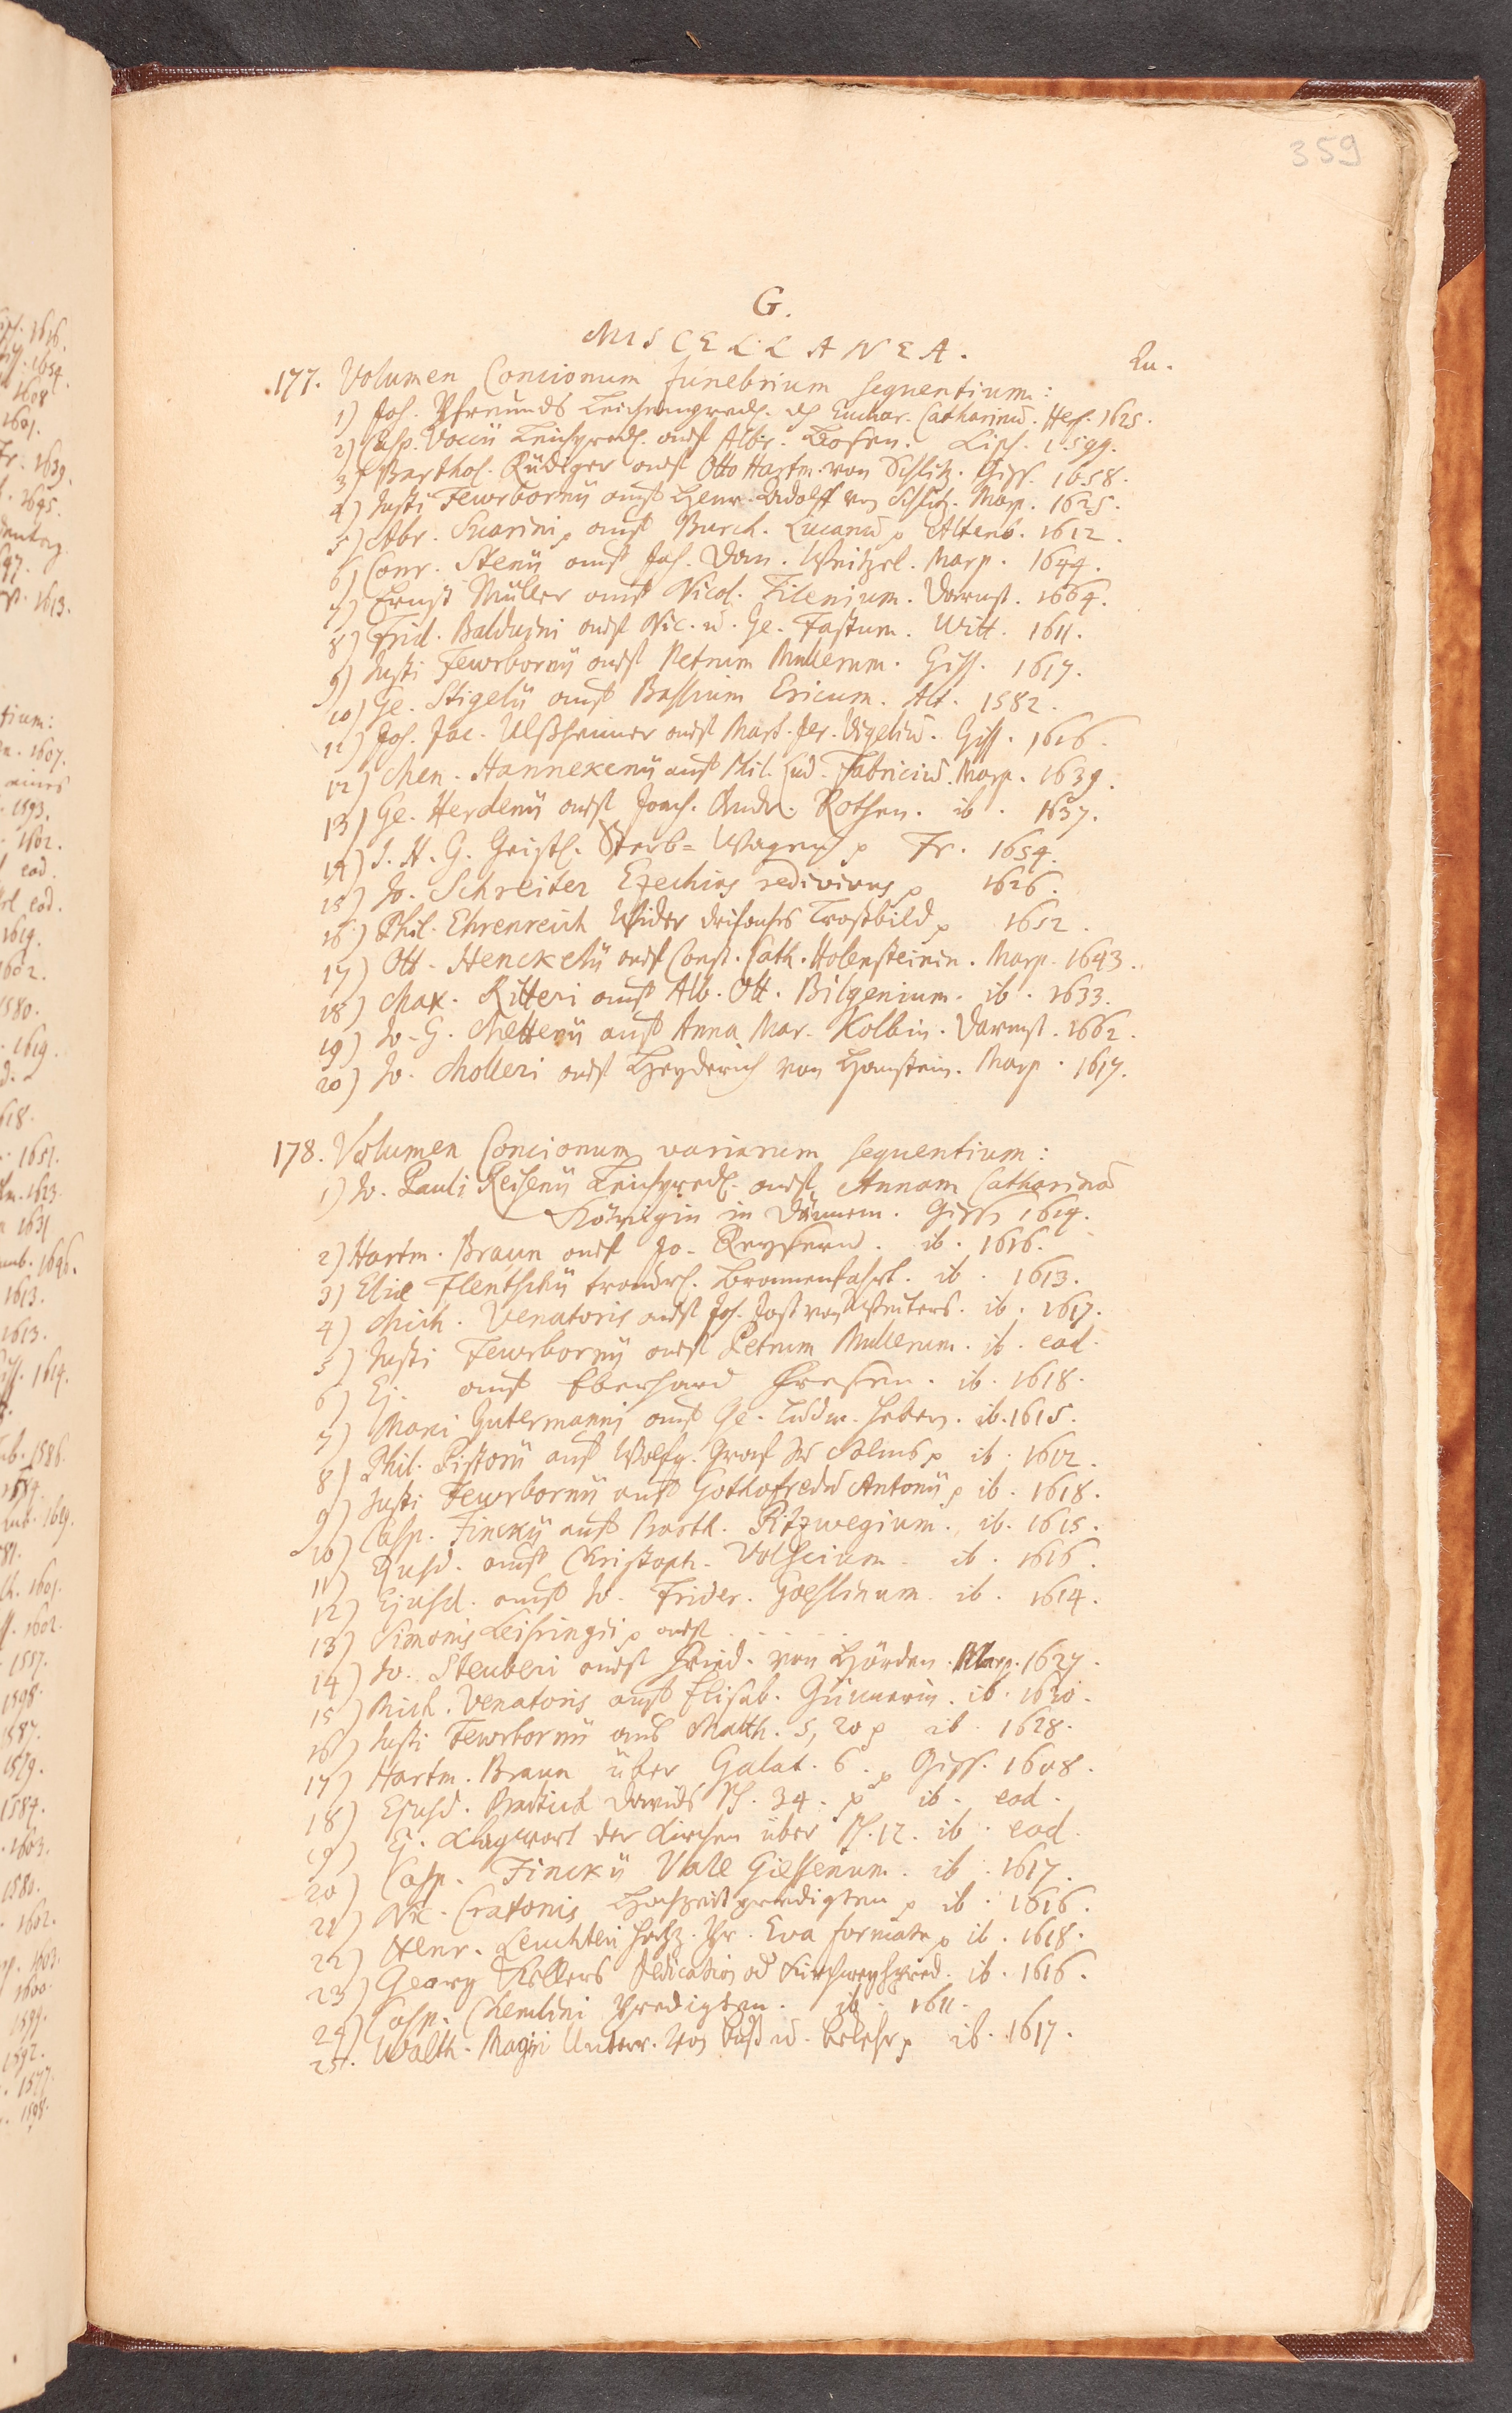 359
G.
MISCELLANEA.
Qu.
177. Volumen Concionum funebrium sequentium:
1) Joh. Pfreunds Leichenpred. Euchar. Catharinū. Hef. 1625.
2) Casp. Voccii Leichpred. auf Albr. Lips. 1599.
3) Barthol. Rüdiger auf Otto Hartm. von Schlitz. Giss. 1658.
4) Justi Fewrbornij auf Henr. Rudolff von Schlitz. Marp. 1625.
5) Abr. Suarini, auf Burch. Lucanū p Altenb. 1612.
6) Conr. Stenii auf Joh. Dan. Weitzel. Marp. 1644.
7) Ernst Müller auf Nicol. Filenium. Darmst. 1664.
8) Frid. Balduini auf Nic. u. Ge. Fastum. Witt. 1611.
9) Justi Fewrbornij auf Petrum Mullerum. Giss. 1617.
10) Ge. Stigelii auf Bassium Ericum. Alt. 1582.
11) Joh. Jac. Ulßheimer auf Mart. Jer. Vigeliū. Giss. 1626.
12) Men. Hannekenij auf Phil. Lud. Fabriciū. Marp. 1639.
13) Ge. Herdenij auf Joach. Andr. Rothen. ib. 1637.
14) J. H. G. Geistl. Sterb-Wagen p Fr. 1654.
15) Jo. Schreiter Ezechias redivivus p 1626.
16) Phil. Ehrenreich Wider Trostbild p 1652.
17) Ott. Henckelij auf Const. Cath. Holensteinin. Marp. 1643.
18) Max. Ritteri auf Alb. Ott. Bilgenium. ib. 1633.
19) Jo. G. Mettenij auf Anna Mar. Kolbin. Darmst. 1662.
20) Jo. Molleri auf Heyderich von Hanstein. Marp. 1617.
178. Volumen Concionum variarum sequentium:
1) Jo. Pauli Reisenij Leichpred. auf Annam Catharinā
Königin in Dännem. Giss. 1614.
2) Hartm. Braun auf Jo. ib. 1616.
3) Eliæ Flentschij Brunnenfahrt. ib. 1613.
4) Mich. Venatoris auf Joh. Jost von Weiters. ib. 1617.
5) Justi Fewrbornij auf Petrum Mullerum. ib. eod.
6) Ej. auf Eberhard ib. 1618.
7) Marci Gutermanni auf Ge. Ludw. ib. 1615.
8) Phil. Pistorii auf Wolfg. Graf zu Solms p ib. 1612.
9) Justi Fewrbornij auf Gothofredū Antonij p ib. 1618.
10) Casp. Finckij auf Barth. Pitzwegium. ib. 1615.
11) Ejusd. auf Christoph. Volscium. ib. 1616.
12) Ejusd. auf Jo. Frider. Goeslinum. ib. 1614.
13) Simonis Leisringii p auf . . . . .
14) Jo. Steuberi auf Fried. von Hörden. Marp. 1627.
15) Mich. Venatoris auf Elisab. ib. 1630.
16) Justi Fewrbornij aus Matth. 5, 20 p ib. 1628.
17) Hartm. Braun über Galat. 6. p Giss. 1608.
18) Ejusd. Davids Ps. 34. p ib. eod.
19) Ej. Klagwort der Kirchen über Ps. 12. ib. eod.
20) Casp. Finckij Vale Giessenum. ib. 1617.
21) Nic. Cratonis Hochzeit predigten p ib. 1616.
22) Henr. Leuchteri Hochz. Pr. Eva formata p ib. 1618.
23) Georg Kellers Dedication od Kirchweyhpred. ib. 1616.
24) Casp. Chemlini Predigten. ib. 1611.
25. Walth. Magiri Unterr. von Buß u. Bekehr p ib. 1617.